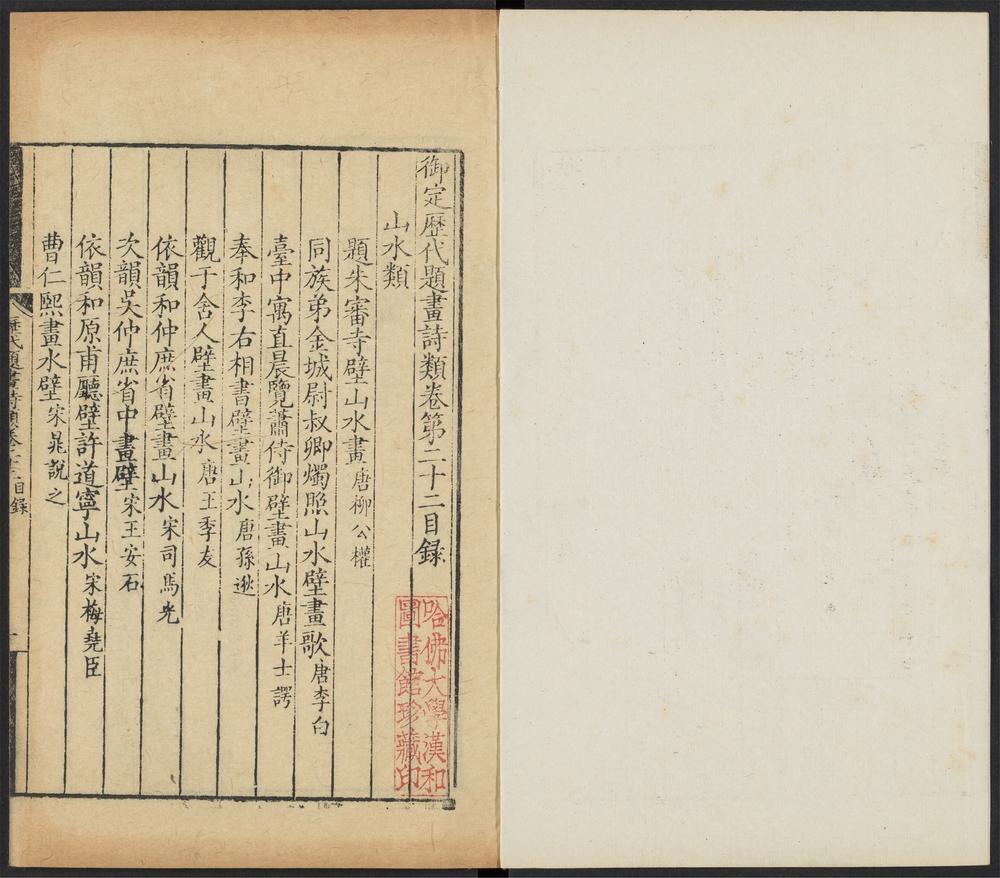 御定歷代題畫詩類卷第二十二目錄
山水類
題朱審寺壁山水畫 唐柳公權
同族弟金城尉叔卿燭照山水壁畫歌 唐李白
臺中寓直晨覽蕭侍御壁畫山水 唐羊士諤
奉和李右相書壁畫山水 唐孫逖
觀于舍人壁畫山水 唐王季友
依韻和仲庶省壁畫山水 宋司馬光
次韻吳仲庶省中畫壁 宋王安石
依韻和原甫廳壁許道寧山水 宋梅堯臣
曹仁熙畫水壁 宋晁說之
歷代題畫詩類卷二十二目錄
一
哈佛大學漢和
圖書館珍藏印